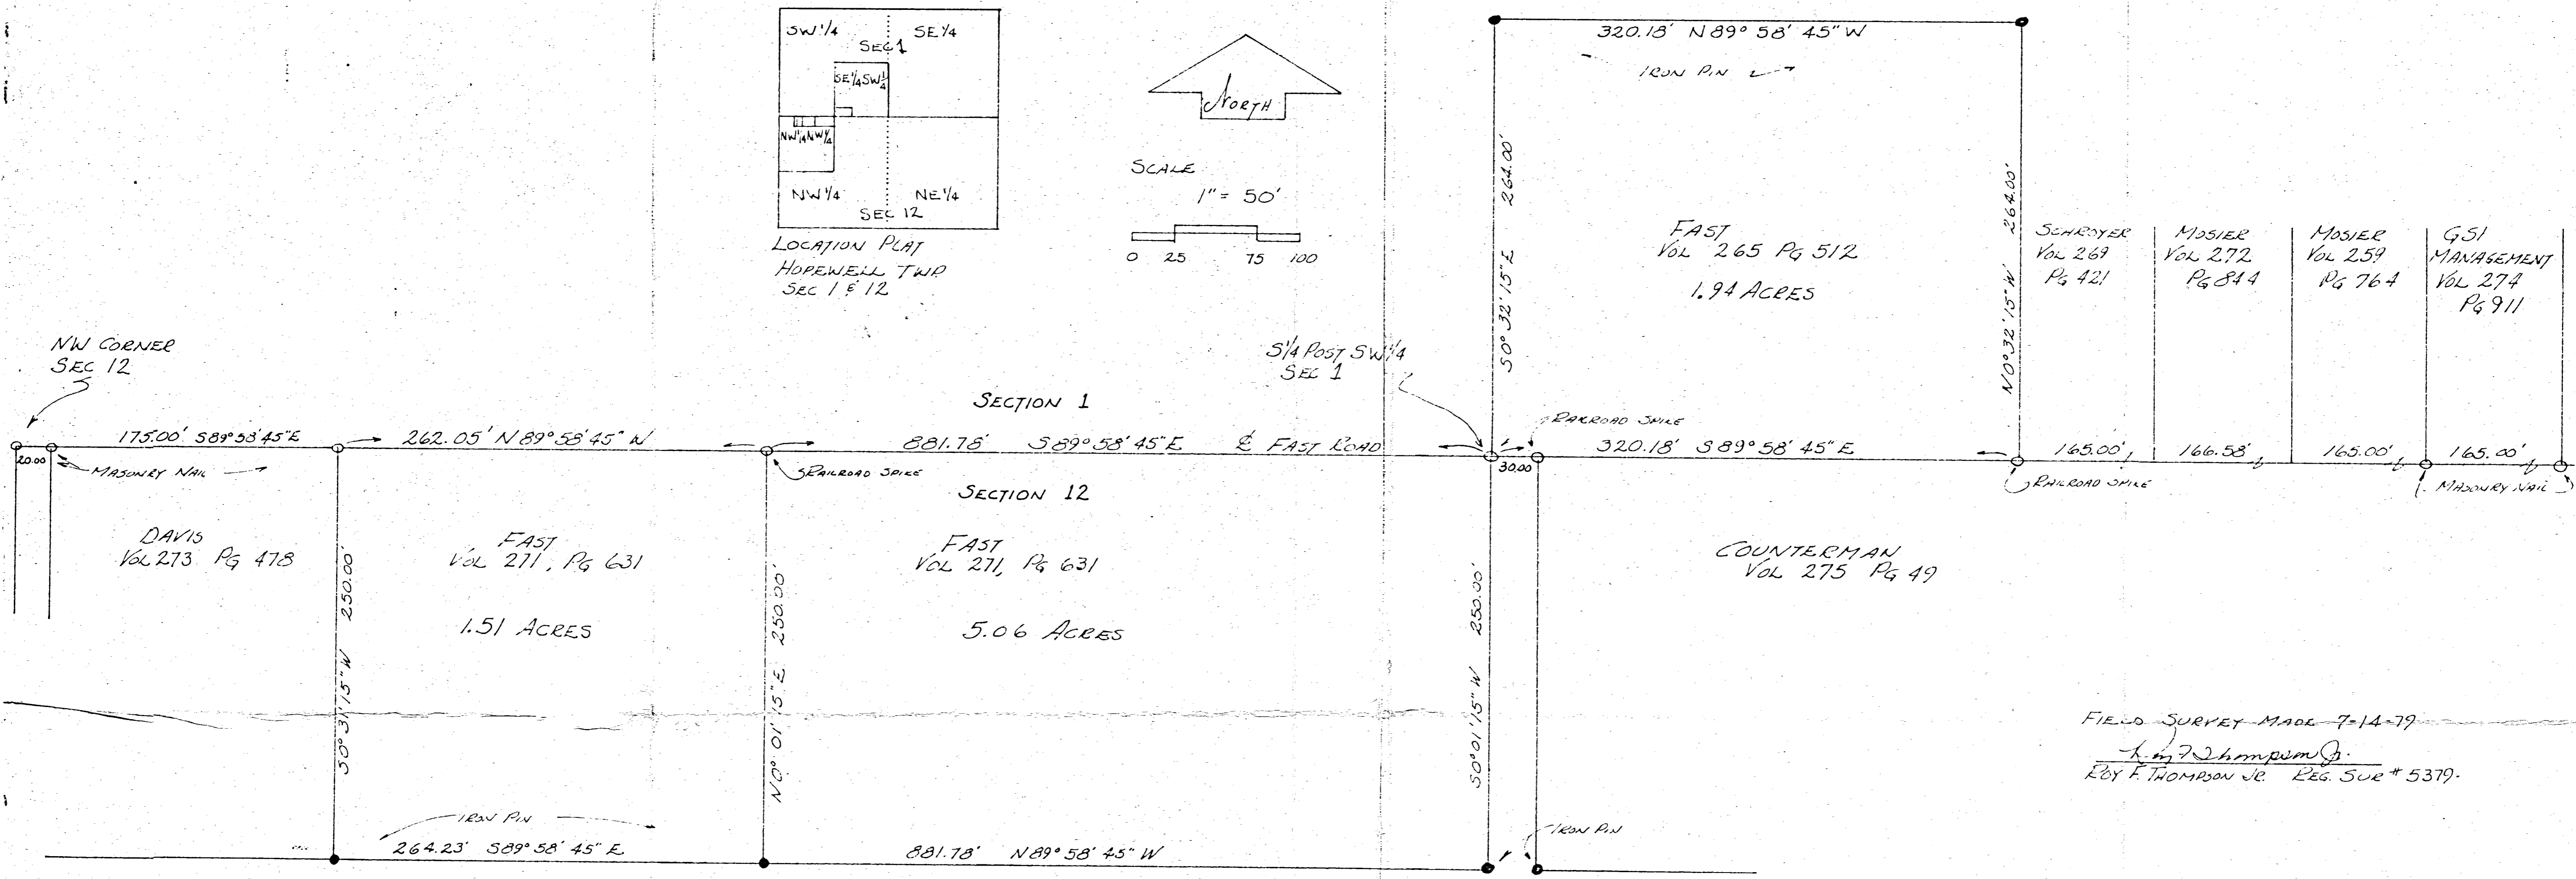 SW 1/4 SE 1/4
SEC 1
SE 1/4 SW 1/4
NW 1/4 NW 1/4
NW 1/4 NE 1/4
SEC 12
LOCATION PLAT
HOPEWELL TWP
SEC 1 & 12
NORTH
SCALE
1" = 50'
0 25 75 100
320.18' N 89° 58' 45" W
IRON PIN
S0° 32' 15" E 264.00'
N0° 32' 15" W 264.00'
FAST
VOL 265 PG 512
1.94 ACRES
SCHROYER
VOL 269
PG 421
MOSIER
VOL 272
PG 844
MOSIER
VOL 259
PG 764
GSI
MANAGEMENT
VOL 274
PG 911
NW CORNER
SEC 12
S 1/4 POST SW 1/4
SEC 1
SECTION 1
RAILROAD SPIKE
175.00' S89° 58' 45" E
262.05' N 89° 58' 45" W
881.78' S 89° 58' 45" E ℄ FAST ROAD
320.18' S 89° 58' 45" E
165.00'
166.58'
165.00'
165.00'
20.00
MASONRY NAIL
RAILROAD SPIKE
30.00
RAILROAD SPIKE
MASONRY NAIL
SECTION 12
DAVIS
VOL 273 PG 478
S0° 31' 15" W 250.00'
FAST
VOL 271, PG 631
1.51 ACRES
N0° 01' 15" E 250.00'
FAST
VOL 271, PG 631
5.06 ACRES
S0° 01' 15" W 250.00'
COUNTERMAN
VOL 275 PG 49
IRON PIN
264.23' S89° 58' 45" E
881.78' N 89° 58' 45" W
IRON PIN
FIELD SURVEY MADE 7-14-79
Roy F Thompson Jr.
ROY F. THOMPSON JR. REG. SUR # 5379.